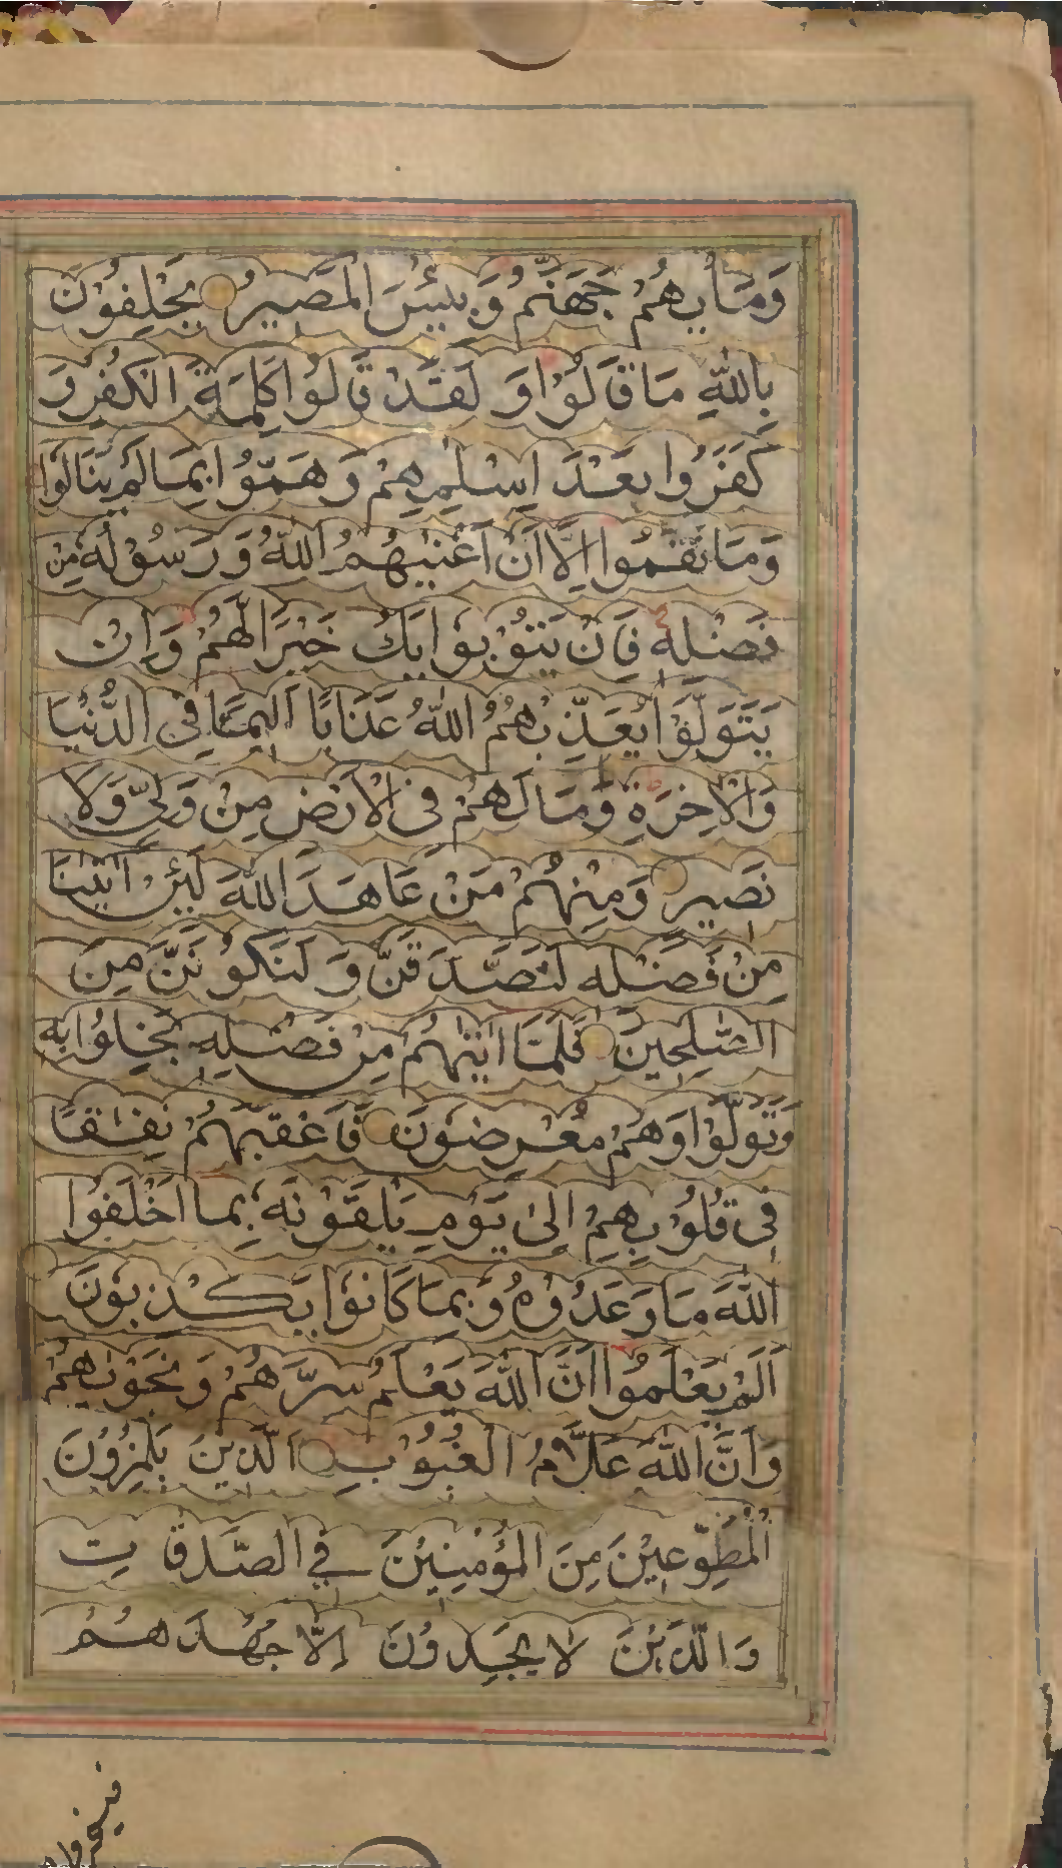 وَمَأْوٰىهُمْ جَهَنَّمُ وَبِئْسَ الْمَصِيْرُ يَحْلِفُوْنَ
بِاللّٰهِ مَا قَالُوْا وَلَقَدْ قَالُوْا كَلِمَةَ الْكُفْرِ وَ
كَفَرُوا بَعْدَ اِسْلٰمِهِمْ وَهَمُّوْا بِمَا لَمْ يَنَالُوْا
وَمَا نَقَمُوا اِلَّا اَنْ اَغْنٰىهُمُ اللّٰهُ وَرَسُوْلُهٗ مِنْ
فَضْلِهٖ فَاِنْ يَتُوْبُوْا يَكُ خَيْرًا لَّهُمْ وَاِنْ
يَتَوَلَّوْا يُعَذِّبْهُمُ اللّٰهُ عَذَابًا اَلِيْمًا فِى الدُّنْيَا
وَالْاٰخِرَةِ وَمَا لَهُمْ فِى الْاَرْضِ مِنْ وَلِىٍّ وَلَا
نَصِيْرٍ وَمِنْهُمْ مَنْ عَاهَدَ اللّٰهَ لَئِنْ اٰتٰىنَا
مِنْ فَضْلِهٖ لَنَصَّدَّقَنَّ وَلَنَكُوْنَنَّ مِنَ
الصّٰلِحِيْنَ فَلَمَّا اٰتٰىهُمْ مِنْ فَضْلِهٖ بَخِلُوْا بِهٖ
وَتَوَلَّوْا وَهُمْ مُعْرِضُوْنَ فَاَعْقَبَهُمْ نِفَاقًا
فِى قُلُوْبِهِمْ اِلٰى يَوْمِ يَلْقَوْنَهٗ بِمَا اَخْلَفُوا
اللّٰهَ مَا وَعَدُوْهُ وَبِمَا كَانُوْا يَكْذِبُوْنَ
اَلَمْ يَعْلَمُوا اَنَّ اللّٰهَ يَعْلَمُ سِرَّهُمْ وَنَجْوٰىهُمْ
وَاَنَّ اللّٰهَ عَلَّامُ الْغُيُوْبِ اَلَّذِيْنَ يَلْمِزُوْنَ
الْمُطَّوِّعِيْنَ مِنَ الْمُؤْمِنِيْنَ فِي الصَّدَقٰتِ
وَالَّذِيْنَ لَا يَجِدُوْنَ اِلَّا جُهْدَهُمْ